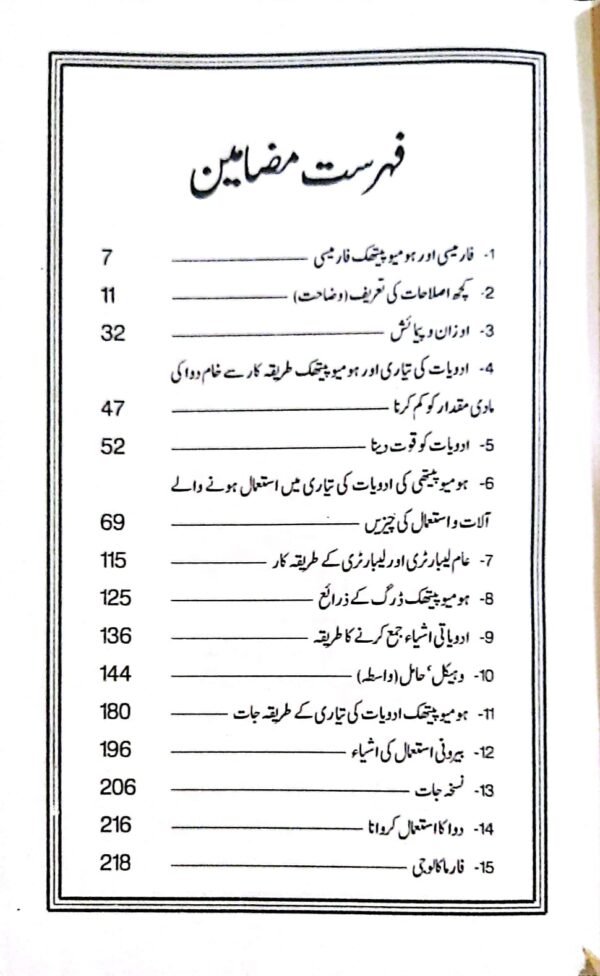 فہرست مضامین
1- فارمیسی اور ہومیوپیتھک فارمیسی 7
2- کچھ اصلاحات کی تعریف (وضاحت) 11
3- اوزان و پیمائش 32
4- ادویات کی تیاری اور ہومیوپیتھک طریقہ کار سے خام دوا کی
مادی مقدار کو کم کرنا 47
5- ادویات کو قوت دینا 52
6- ہومیوپیتھی کی ادویات کی تیاری میں استعمال ہونے والے
آلات و استعمال کی چیزیں 69
7- عام لیبارٹری اور لیبارٹری کے طریقہ کار 115
8- ہومیوپیتھک ڈرگ کے ذرائع 125
9- ادویاتی اشیاء جمع کرنے کا طریقہ 136
10- وہیکل، حامل (واسطہ) 144
11- ہومیوپیتھک ادویات کی تیاری کے طریقہ جات 180
12- بیرونی استعمال کی اشیاء 196
13- نسخہ جات 206
14- دوا کا استعمال کروانا 216
15- فارماکالوجی 218